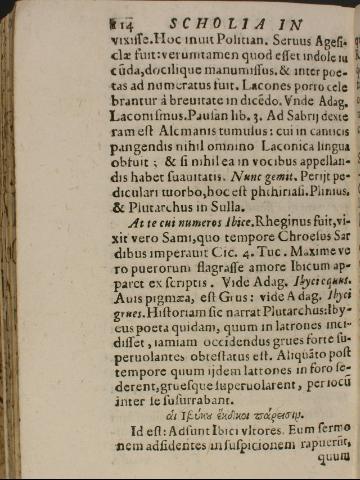 114 SCHOLIA IN
vixisse. Hoc inuit Politian. Seruus Agesi-
clæ fuit: verumtamen quod esset indole iu
cũda, docilique manumissus. & inter poe-
tas ad numeratus fuit. Lacones porro cele
brantur à breuitate in dicẽdo. Vnde Adag.
Laconismus. Pausan lib. 3. Ad Sabrij dexte
ram est Alcmanis tumulus: cui in canticis
pangendis nihil omnino Laconica lingua
obfuit; & si nihil ea in vocibus appellan-
dis habet suauitatis. Nunc gemit. Perijt pe-
diculari morbo, hoc est phthiriasi. Plinius.
& Plutarchus in Sulla.
At te cui numeros Ibice. Rheginus fuit, vi-
xit vero Sami, quo tempore Chroesus Sar
dibus imperauit Cic. 4. Tuc. Maxime ve
ro puerorum flagrasse amore Ibicum ap-
paret ex scriptis. Vide Adag. Ibyci equus.
Auis pigmæa, est Grus: vide Adag. Ibyci
grues. Historiam sic narrat Plutarchus: Iby-
cus poeta quidam, quum in latrones inci-
disset, iamiam occidendus grues forte su-
peruolantes obtestatus est. Aliquãto post
tempore quum ijdem latrones in foro se-
derent, gruesque superuolarent, per iocũ
inter se susurrabant.
αἱ Ἰβύκου ἔκδικοι πάρεισιν.
Id est: Adsunt Ibici vltores. Eum sermo
nem adsidentes in suspicionem rapuerũt,
quum